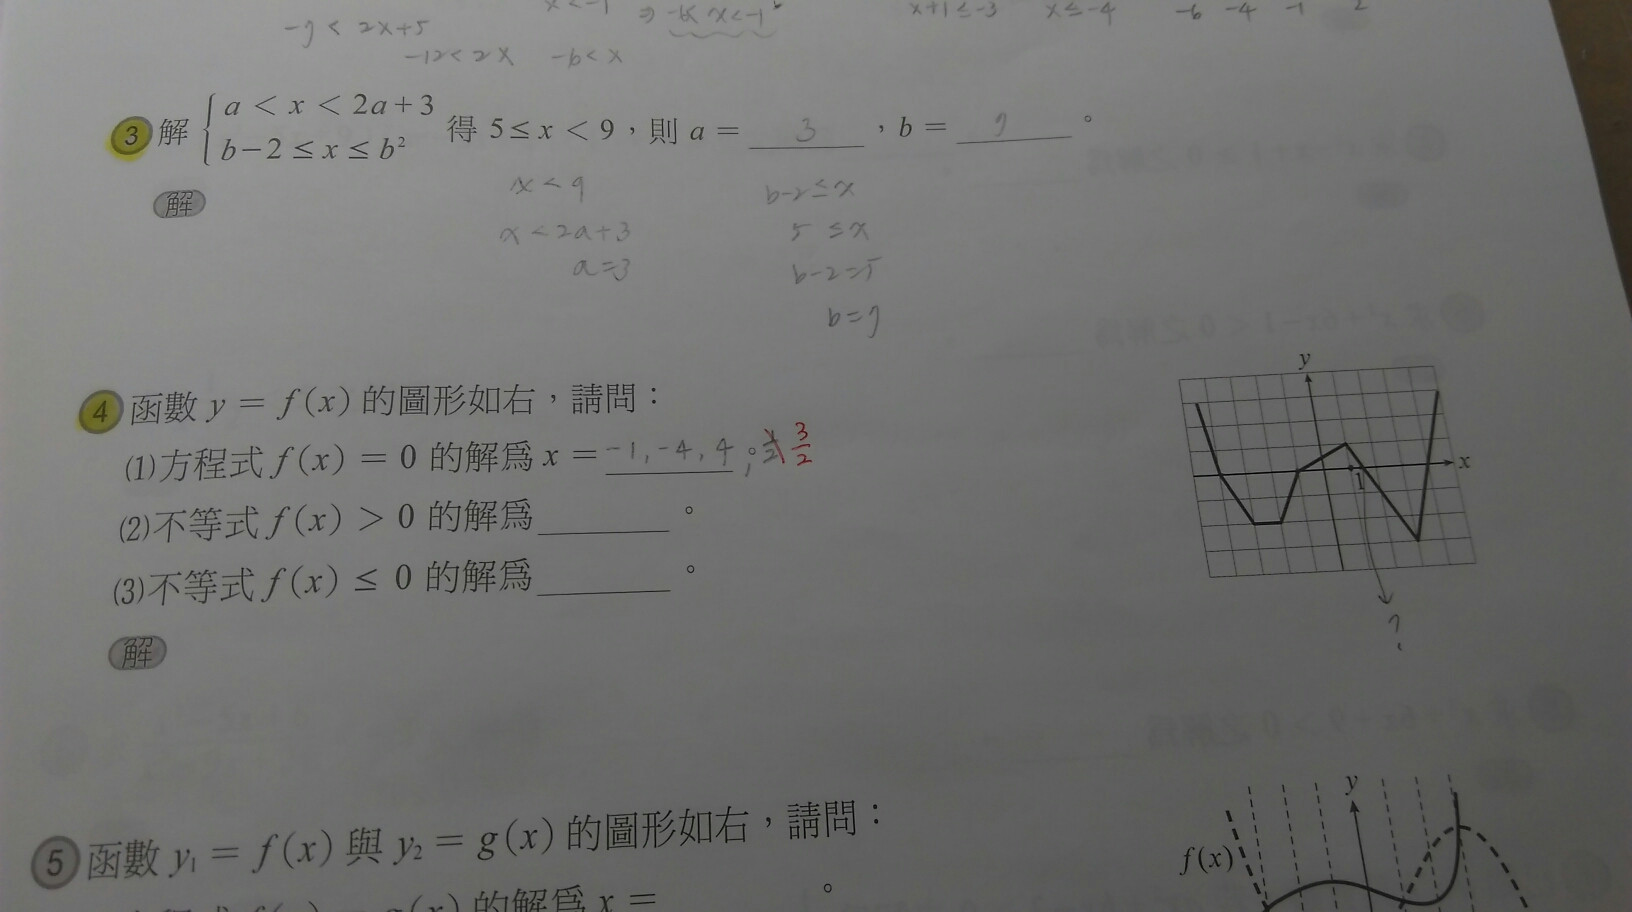 x < -1 ⇒ -6 < x < -1 x+1 ≤ -3 x ≤ -4 -6 -4 -1 2
-7 < 2x+5
-12 < 2x -6 < x
3 解 { a < x < 2a+3
b-2 ≤ x ≤ b² 得 5 ≤ x < 9，則 a = 3 ，b = 7 。
解
x < 9 b-2 ≤ x
x < 2a+3 5 ≤ x
a=3 b-2=5
b=7
4 函數 y = f(x) 的圖形如右，請問：
(1)方程式 f(x) = 0 的解為 x = -1, -4, 4 ; 3/2 。
(2)不等式 f(x) > 0 的解為 。
(3)不等式 f(x) ≤ 0 的解為 。
解
y
x
1
?
5 函數 y₁ = f(x) 與 y₂ = g(x) 的圖形如右，請問：
g(x) 的解為 x = 。
y
f(x)